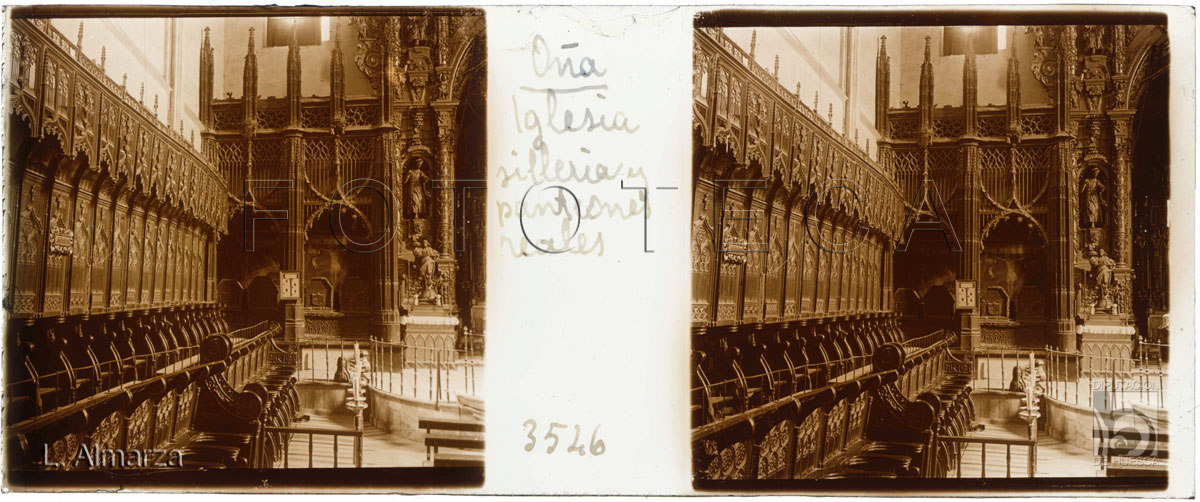 Oña
Iglesia
sillería y
panteones
reales
3546
FOTOTECA
L. Almarza
DIPUTACIÓN
DE HUESCA